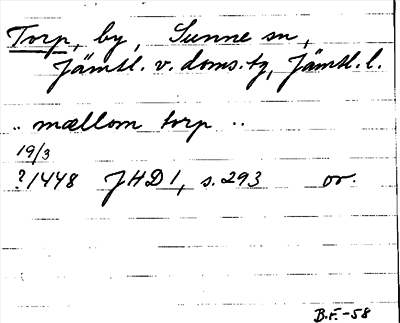 Torp, by, Sunne sn,
Jämtl. v. doms. tg, Jämtl. l.
.. mællom torp ..
19/3
?1448 JHD 1, s. 293 or.
B.F.-58